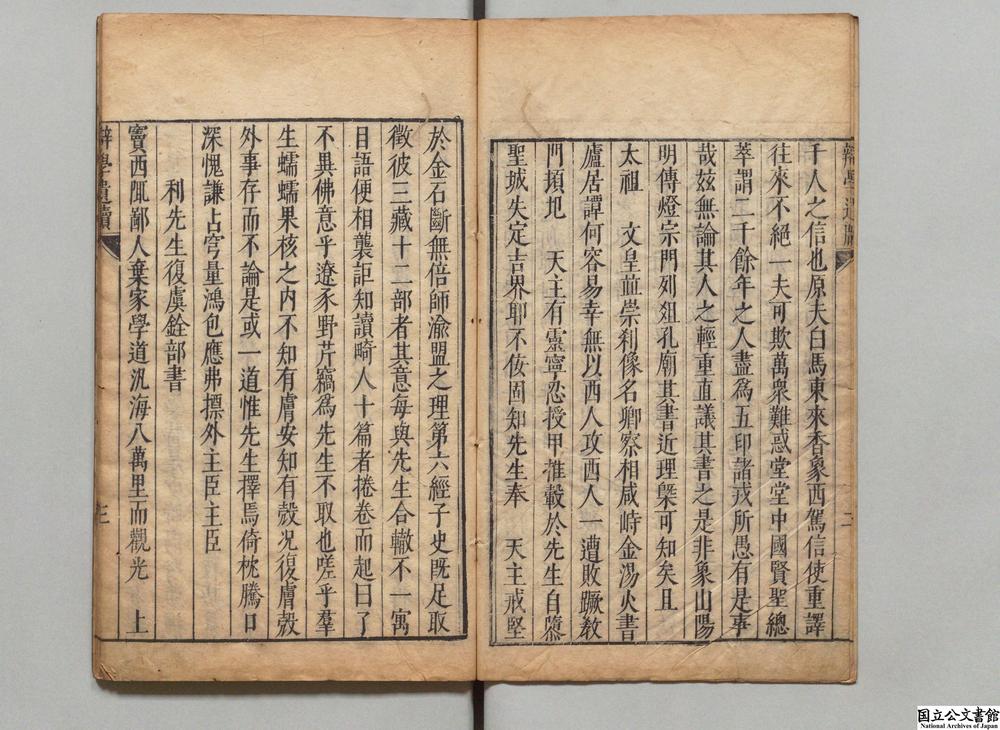 千人之信也原夫白馬東來香象西駕信使重譯
往來不絕一夫可欺萬衆難惑堂堂中國賢聖總
萃謂二千餘年之人盡爲五印諸戎所愚有是事
哉玆無論其人之輕重直議其書之是非象山陽
明傳燈宗門列俎孔廟其書近理槩可知矣且
太祖　文皇並崇刹像名卿察相咸峙金湯火書
廬居譚何容易幸無以西人攻西人一遭敗蹶教
門頓圮　天主有靈寧忍授甲推轂於先生自隳
聖城失定吉界耶不佞固知先生奉　天主戒堅
辯學遺牘
二
於金石斷無倍師渝盟之理第六經子史既足取
徵彼三藏十二部者其意每與先生合轍不一寓
目語便相襲詎知讀畸人十篇者捲卷而起曰了
不異佛意乎遼豕野芹竊爲先生不取也嗟乎羣
生蠕蠕果核之內不知有膚安知有殼況復膚殼
外事存而不論是或一道惟先生擇焉倚枕騰口
深愧謙占穹量鴻包應弗摽外主臣主臣
利先生復虞銓部書
竇西陬鄙人棄家學道汎海八萬里而觀光　上
辯學遺牘
國立公文書館
National Archives of Japan